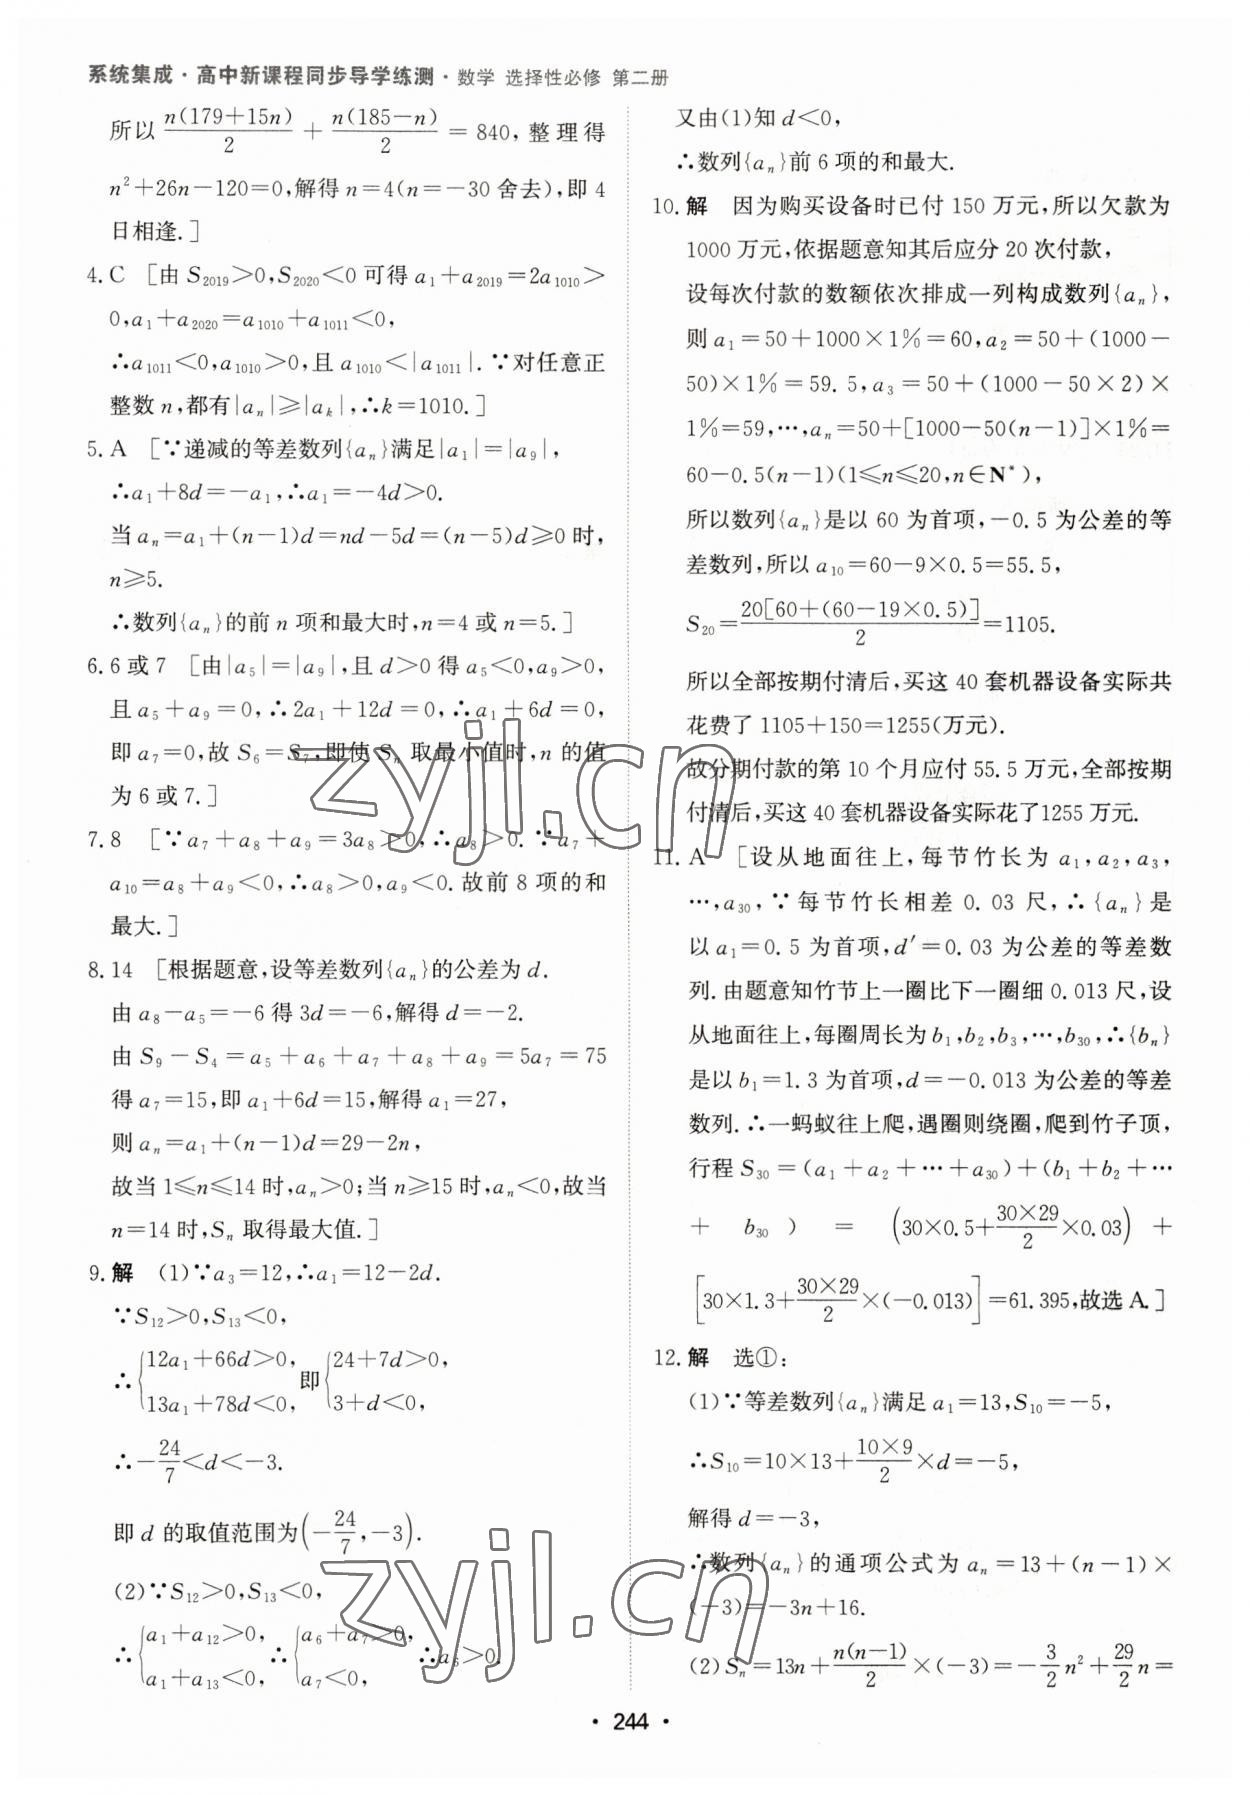 系统集成·高中新课程同步导学练测·数学 选择性必修 第二册
所以 n(179+15n)/2 + n(185-n)/2 = 840,整理得
n²+26n-120=0,解得 n=4(n=-30 舍去),即 4
日相逢.]
4. C [由 S₂₀₁₉>0,S₂₀₂₀<0 可得 a₁+a₂₀₁₉=2a₁₀₁₀>
0,a₁+a₂₀₂₀=a₁₀₁₀+a₁₀₁₁<0,
∴a₁₀₁₁<0,a₁₀₁₀>0,且 a₁₀₁₀<|a₁₀₁₁|.∵对任意正
整数 n,都有|aₙ|≥|aₖ|,∴k=1010.]
5. A [∵递减的等差数列{aₙ}满足|a₁|=|a₉|,
∴a₁+8d=-a₁,∴a₁=-4d>0.
当 aₙ=a₁+(n-1)d=nd-5d=(n-5)d≥0 时,
n≥5.
∴数列{aₙ}的前 n 项和最大时,n=4 或 n=5.]
6. 6 或 7 [由|a₅|=|a₉|,且 d>0 得 a₅<0,a₉>0,
且 a₅+a₉=0,∴2a₁+12d=0,∴a₁+6d=0,
即 a₇=0,故 S₆=S₇,即使 Sₙ 取最小值时,n 的值
为 6 或 7.]
7. 8 [∵a₇+a₈+a₉=3a₈>0,∴a₈>0.∵a₇+
a₁₀=a₈+a₉<0,∴a₈>0,a₉<0.故前 8 项的和
最大.]
8. 14 [根据题意,设等差数列{aₙ}的公差为 d.
由 a₈-a₅=-6 得 3d=-6,解得 d=-2.
由 S₉-S₄=a₅+a₆+a₇+a₈+a₉=5a₇=75
得 a₇=15,即 a₁+6d=15,解得 a₁=27,
则 aₙ=a₁+(n-1)d=29-2n,
故当 1≤n≤14 时,aₙ>0;当 n≥15 时,aₙ<0,故当
n=14 时,Sₙ 取得最大值.]
9. 解 (1)∵a₃=12,∴a₁=12-2d.
∵S₁₂>0,S₁₃<0,
∴{12a₁+66d>0, 13a₁+78d<0, 即{24+7d>0, 3+d<0,
∴-24/7<d<-3.
即 d 的取值范围为(-24/7,-3).
(2)∵S₁₂>0,S₁₃<0,
∴{a₁+a₁₂>0, a₁+a₁₃<0, ∴{a₆+a₇>0, a₇<0, ∴a₆>0.
又由(1)知 d<0,
∴数列{aₙ}前 6 项的和最大.
10. 解 因为购买设备时已付 150 万元,所以欠款为
1000 万元,依据题意知其后应分 20 次付款,
设每次付款的数额依次排成一列构成数列{aₙ},
则 a₁=50+1000×1%=60,a₂=50+(1000-
50)×1%=59.5,a₃=50+(1000-50×2)×
1%=59,…,aₙ=50+[1000-50(n-1)]×1%=
60-0.5(n-1)(1≤n≤20,n∈N*),
所以数列{aₙ}是以 60 为首项,-0.5 为公差的等
差数列,所以 a₁₀=60-9×0.5=55.5,
S₂₀=20[60+(60-19×0.5)]/2=1105.
所以全部按期付清后,买这 40 套机器设备实际共
花费了 1105+150=1255(万元).
故分期付款的第 10 个月应付 55.5 万元,全部按期
付清后,买这 40 套机器设备实际花了1255 万元.
11. A [设从地面往上,每节竹长为 a₁,a₂,a₃,
…,a₃₀,∵每节竹长相差 0.03 尺,∴{aₙ}是
以 a₁=0.5 为首项,d′=0.03 为公差的等差数
列.由题意知竹节上一圈比下一圈细 0.013 尺,设
从地面往上,每圈周长为 b₁,b₂,b₃,…,b₃₀,∴{bₙ}
是以 b₁=1.3 为首项,d=-0.013 为公差的等差
数列.∴一蚂蚁往上爬,遇圈则绕圈,爬到竹子顶,
行程 S₃₀=(a₁+a₂+…+a₃₀)+(b₁+b₂+…
+b₃₀)=(30×0.5+30×29/2×0.03)+
[30×1.3+30×29/2×(-0.013)]=61.395,故选 A.]
12. 解 选①:
(1)∵等差数列{aₙ}满足 a₁=13,S₁₀=-5,
∴S₁₀=10×13+10×9/2×d=-5,
解得 d=-3,
∴数列{aₙ}的通项公式为 aₙ=13+(n-1)×
(-3)=-3n+16.
(2)Sₙ=13n+n(n-1)/2×(-3)=-3/2n²+29/2n=
·244·
zyjl.cn
zyjl.cn